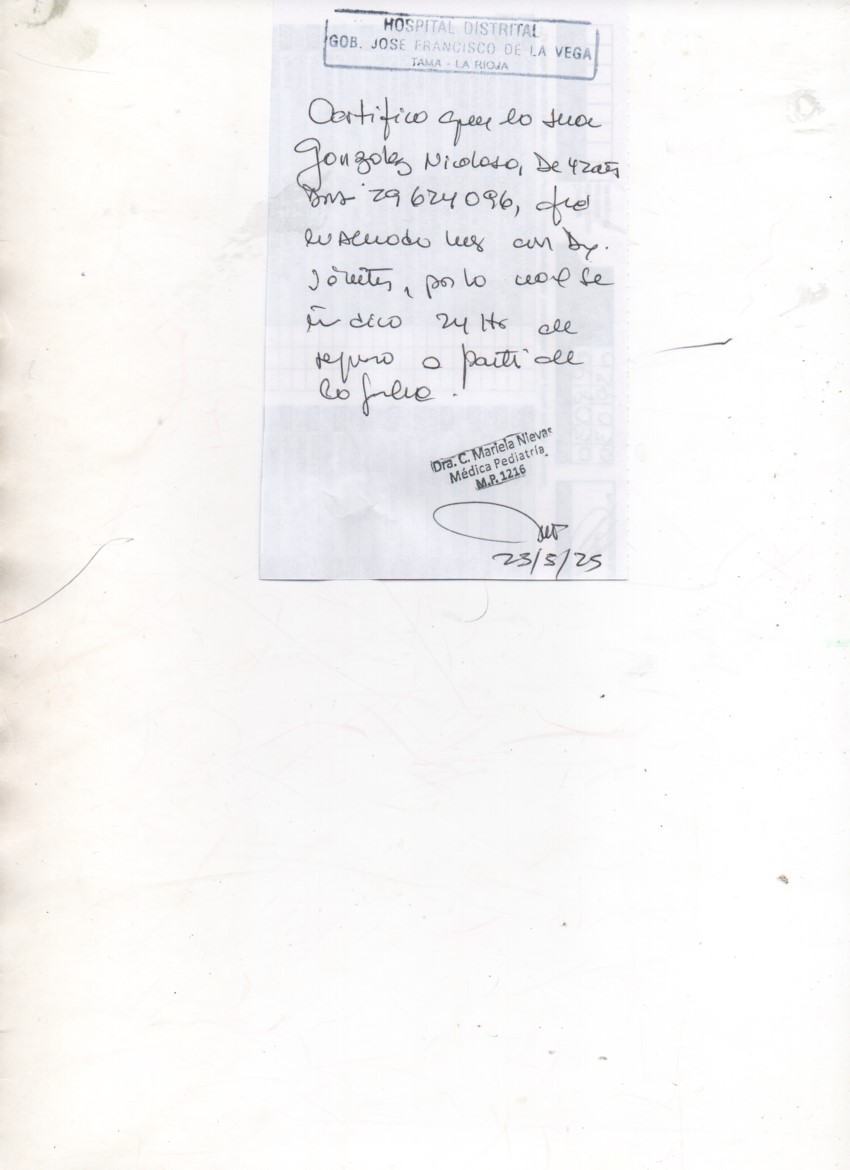 HOSPITAL DISTRITAL
GOB. JOSE FRANCISCO DE LA VEGA
TAMA - LA RIOJA
Certifico que la Sra
Gonzalez Nicolasa, De 42 años
DNI 29624096, fue
evaluada hoy con Dx.
, por lo cual se
indico 24 Hs de
reposo a partir de
la fecha.
Dra. C. Mariela Nievas
Médica Pediatría
M.P. 1216
23/5/25